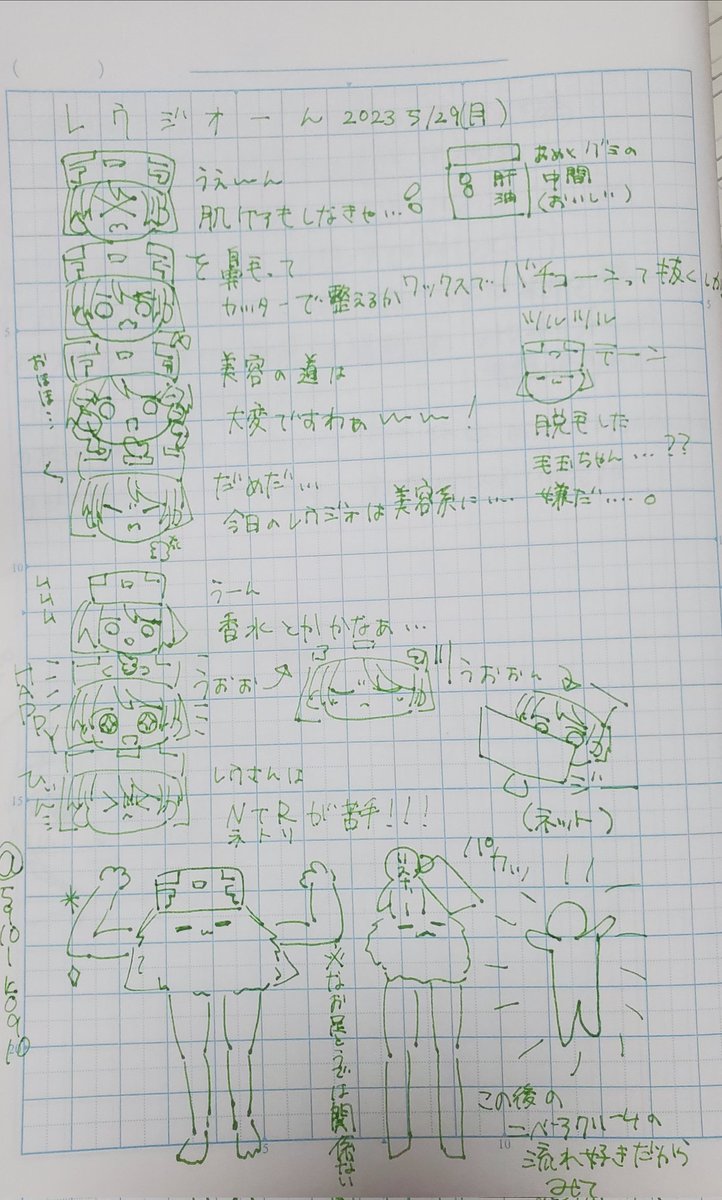 レウジオーん 2023 5/29(月)
うえーん
肌ケアもしなきゃ…
肝油
おやつとグミの
中間
(おいしい)
鼻毛って
カッターで整えるかワックスでバチコーンって抜くしか
美容の道は
大変ですわぁ〜〜!
おほほ…
ツルツル
デーン
脱毛した
毛玉ちゃん…??
嫌だ….。
だめだ…
今日のレウジオは美容系に…
うーん
香水とかかなぁ…
HAPPY
うおお
うおおん
ひぃん
レウさんは
NTRが苦手!!!
ネトリ
(ネット)
パカッ
!!
※なお足とうでは関係ない
この後の
ニベアクリームの
流れ好きだから
みせて